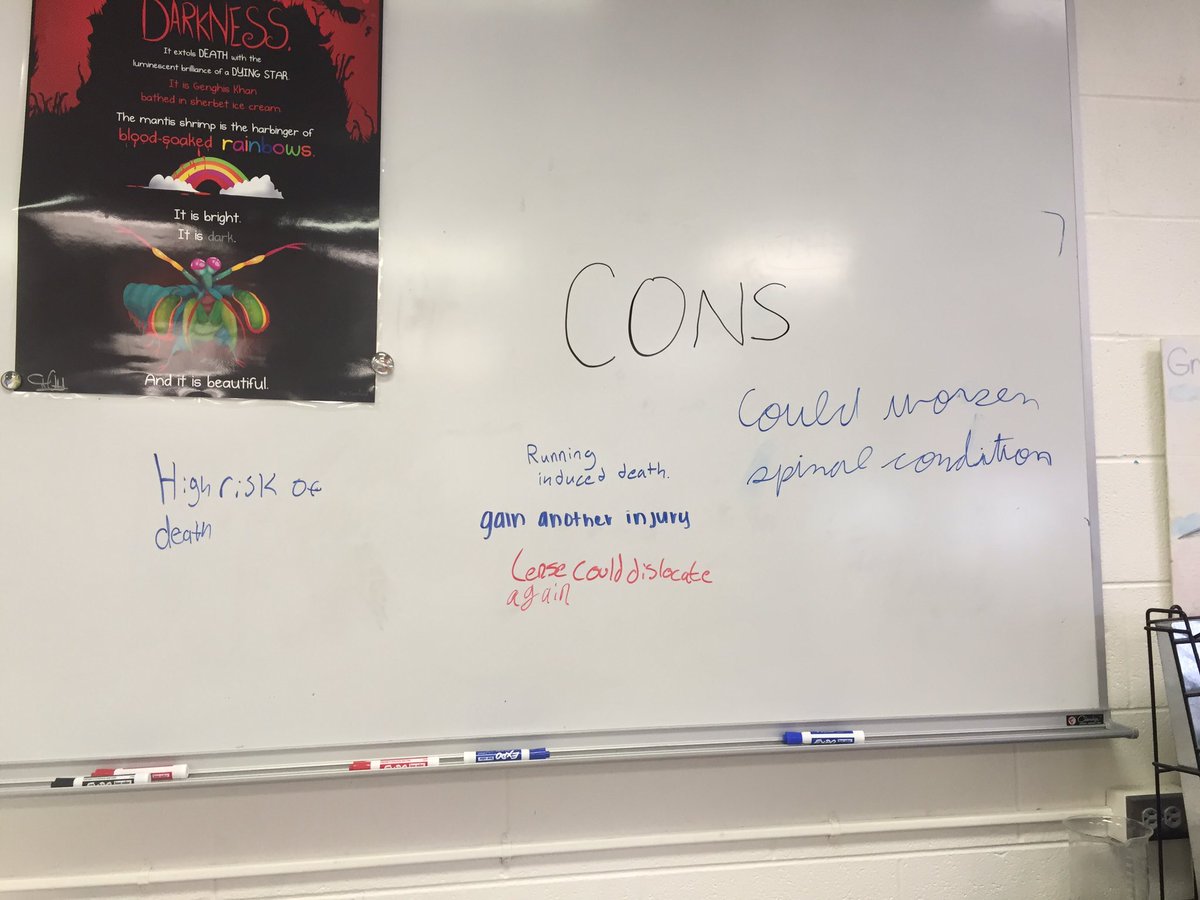 DARKNESS.
It extols DEATH with the
luminescent brilliance of a DYING STAR.
It is Genghis Khan
bathed in sherbet ice cream.
The mantis shrimp is the harbinger of
blood-soaked rainbows.
It is bright.
It is dark.
And it is beautiful.
CONS
High risk of
death
Running
induced death.
gain another injury
Lense could dislocate
again
Could worsen
spinal condition
Gr
EXPO